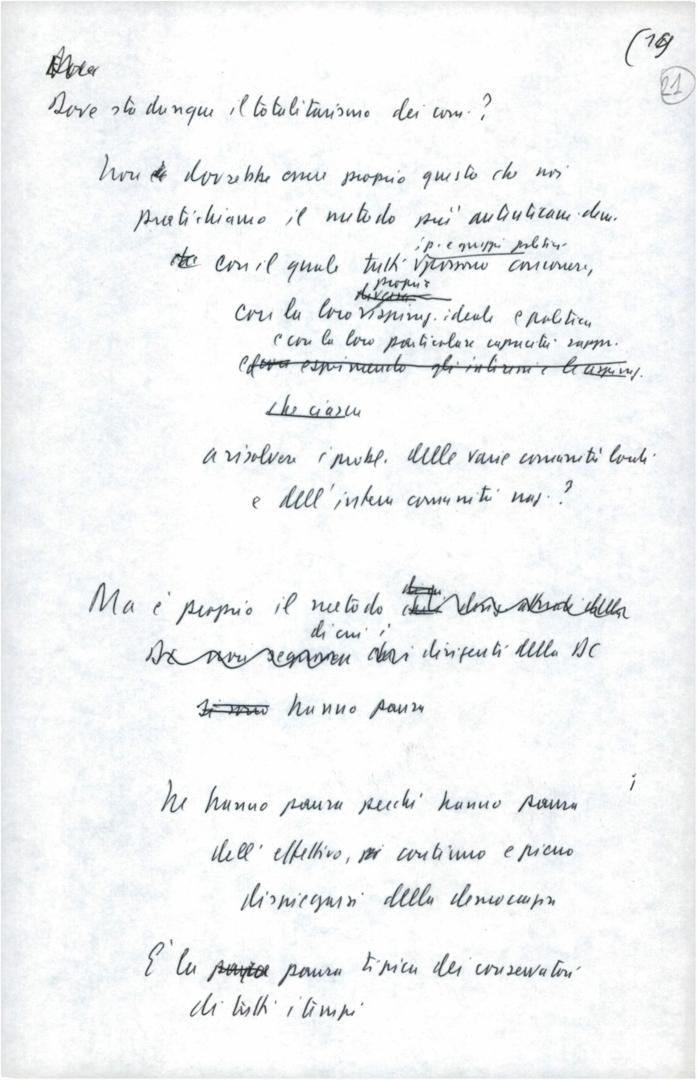 (16)
21
Dove sta dunque il totalitarismo dei com.?
Non dovrebbe essere proprio questo che noi
pratichiamo il metodo più autenticam. dem.
i p. e gruppi politici
con il quale tutti possono concorrere,
propria
diversa
con la loro ispiraz. ideale e politica
e con la loro particolare capacità rappr.
esprimendo gli interessi e le aspiraz.
che ciascu
a risolvere i probl. delle varie comunità locali
e dell'intera comunità naz.?
Ma è proprio il metodo
di cui i
dirigenti della DC
si sono hanno paura
i
Ne hanno paura perché hanno paura
dell'effettivo, continuo e pieno
dispiegarsi della democrazia
È la paura paura tipica dei conservatori
di tutti i tempi